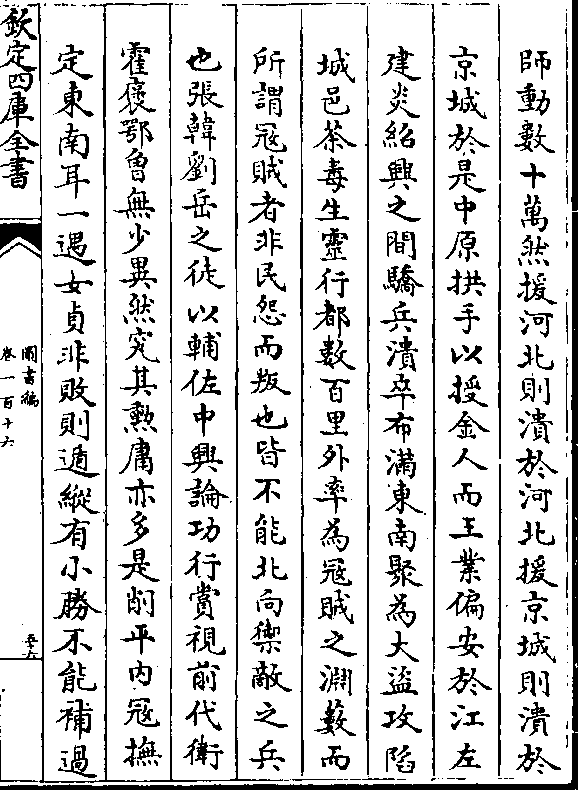 師動數十萬然援河北則潰於河北援京城則潰於
京城於是中原拱手以授金人而王業偏安於江左
建炎紹興之間驕兵潰卒布滿東南聚為大盜攻陷
城邑荼毒生靈行都數百里外率為冦賊之淵藪而
所謂冦賊者非民怨而叛也皆不能北向禦敵之兵
也張韓劉岳之徒以輔佐中興論功行賞視前代衛
霍褒鄂曾無少異然究其勲庸亦多是削平内冦撫
定東南耳一遇女貞非敗則遁縱有小勝不能補過
欽定四庫全書
圖書編
卷一百十六
五十六